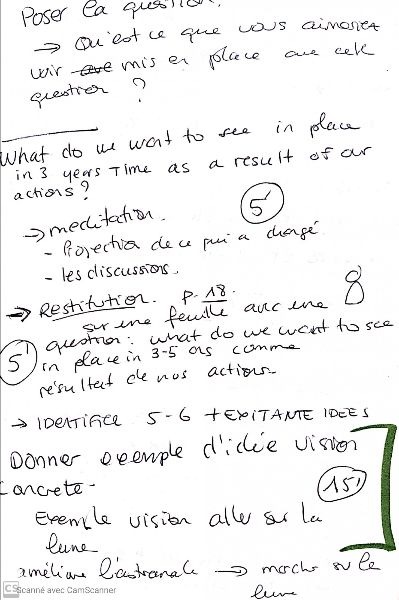 Poser la question.
→ Qu'est ce que vous aimeriez
voir ave mis en place avec cette
question ?
What do we want to see in place
in 3 years time as a result of our
actions ?
→ meditation. 5'
- Projection de ce qui a changé
- les discussions.
→ Restitution. p. 18. 8
sur une feuille avec une
5' question : what do we want to see
in place in 3-5 ans comme
résultat de nos actions
→ IDENTIFIER 5-6 + EXITANTE IDEES
Donner exemple d'idée vision
concrete - 15'
Exemple vision aller sur la
lune
améliorer l'astronaute → marcher sur la
lune
CS Scanné avec CamScanner